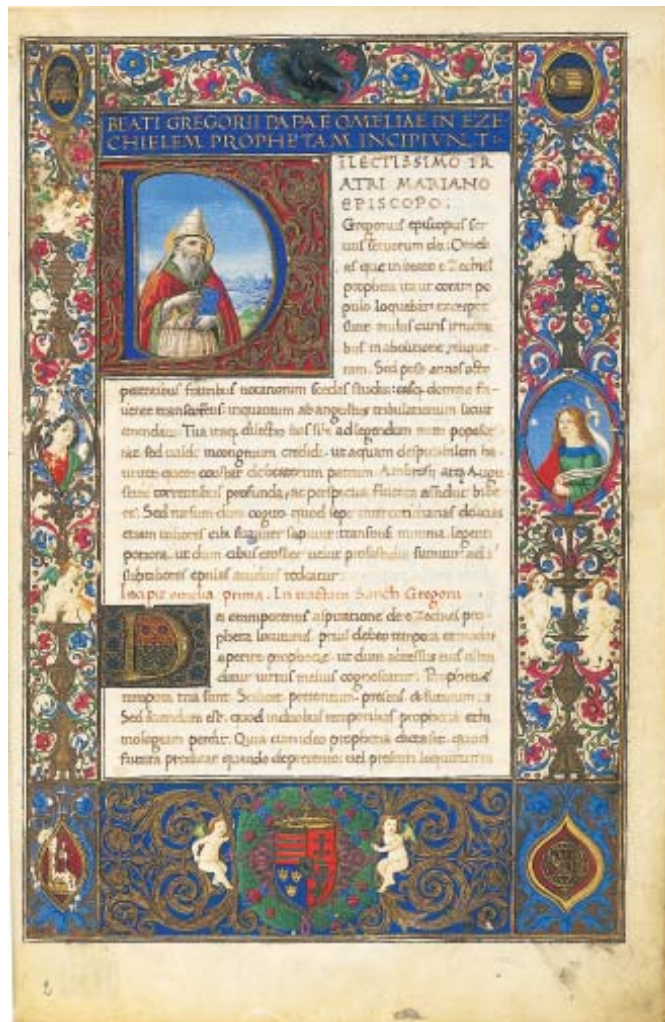 BEATI GREGORII PAPAE OMELIAE IN EZE
CHIELEM PROPHETAM INCIPIVNT:
DILECTISSIMO FR
ATRI MARIANO
EPISCOPO:
Gregorius episcopus ser
uus seruorum dei: Omeli
as que in beato eZechiel
propheta ita ut coram po
pulo loquebar
multis curis
bus in abolitione relique
ram. Sed post annos octo
petentibus fratribus notariorum scedas
in quantum ab angustiis tribulationum licuit
emendaui. Tua itaque dilectio has sibi ad legendum mitti
sed ualde incongruum credidi ut aquam despicabilem
quem constat de beatorum patrum Ambrosii atque Augu
stini torrentibus profunda ac perspicua fluenta assidue bibe
re. Sed rursum dum cogito quod sepe inter cotidianas delicias
etiam uiliores cibi suauiter sapiunt: transmisi minima legenti
potiora. ut dum cibus grossior uelut pro fastidio sumitur ad
subtiliores epulas auidius redeatur.
omelia prima. Sancti Gregorii
Dei omnipotentis aspiratione de eZechiel pro
pheta locuturus. prius debeo tempora et modos
aperire prophetie. ut dum accessus eius osten
ditur uirtus melius cognoscatur. Prophetie
tempora tria sunt. Scilicet preteritum. presens et futurum:
Sed sciendum est. quod in duobus temporibus prophetia ethi
mologiam perdit. Quia cum ideo prophetia dicta sit. quod
futura predicat quando de preterito: uel presenti loquitur
2